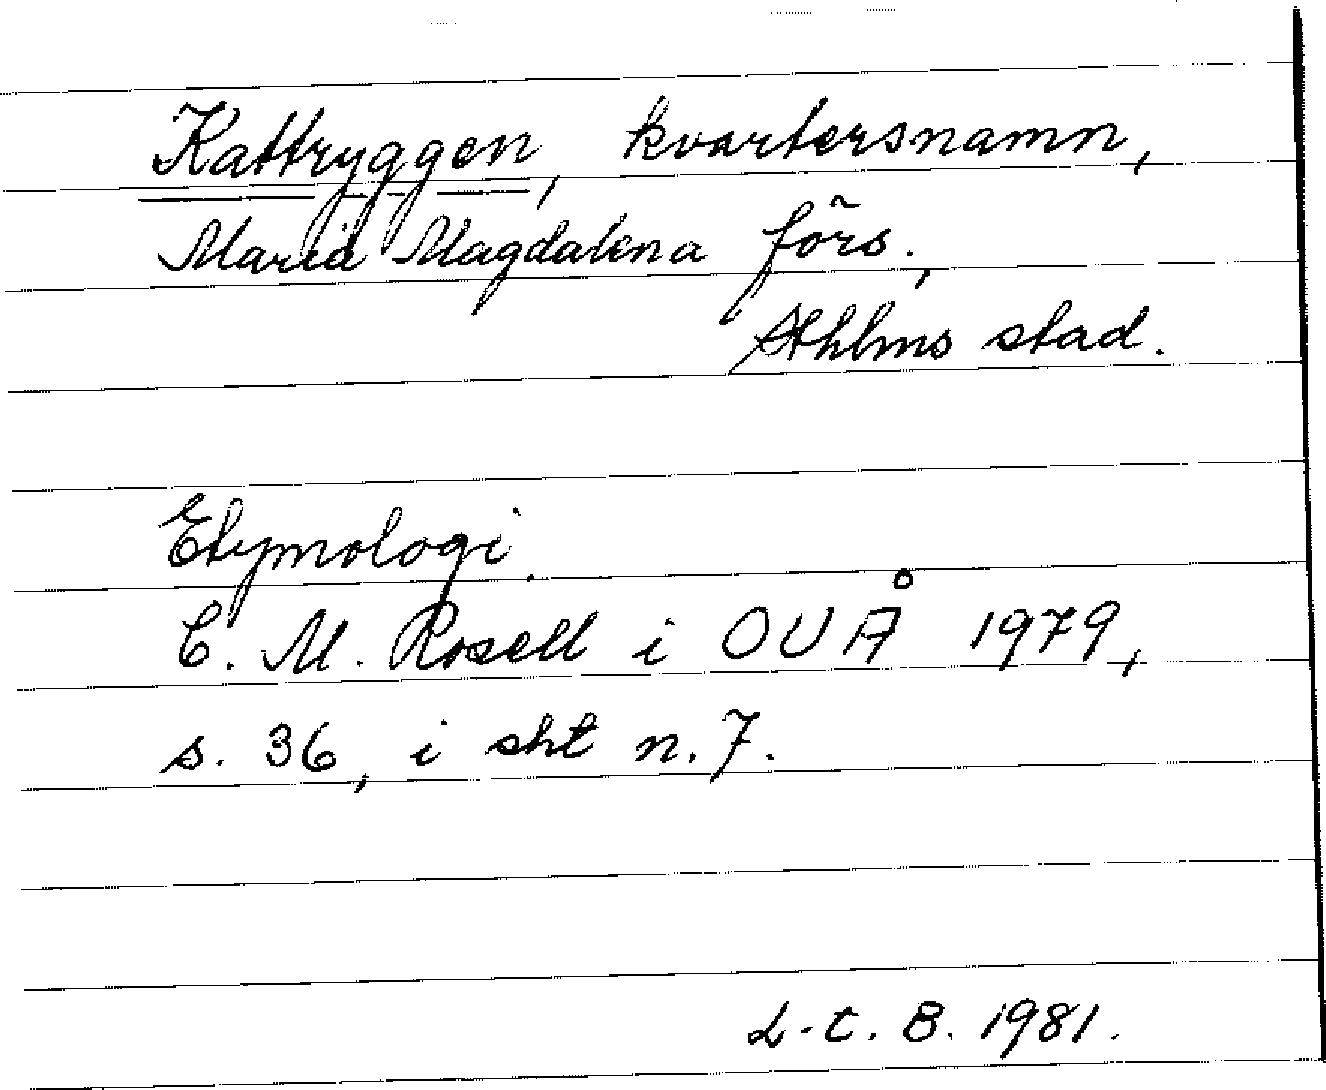 Kattryggen, kvartersnamn,
Maria Magdalena förs.,
Sthlms stad.
Etymologi.
C. M. Rosell i OUÅ 1979,
s. 36, i sht n. 7.
L-t. B. 1981.